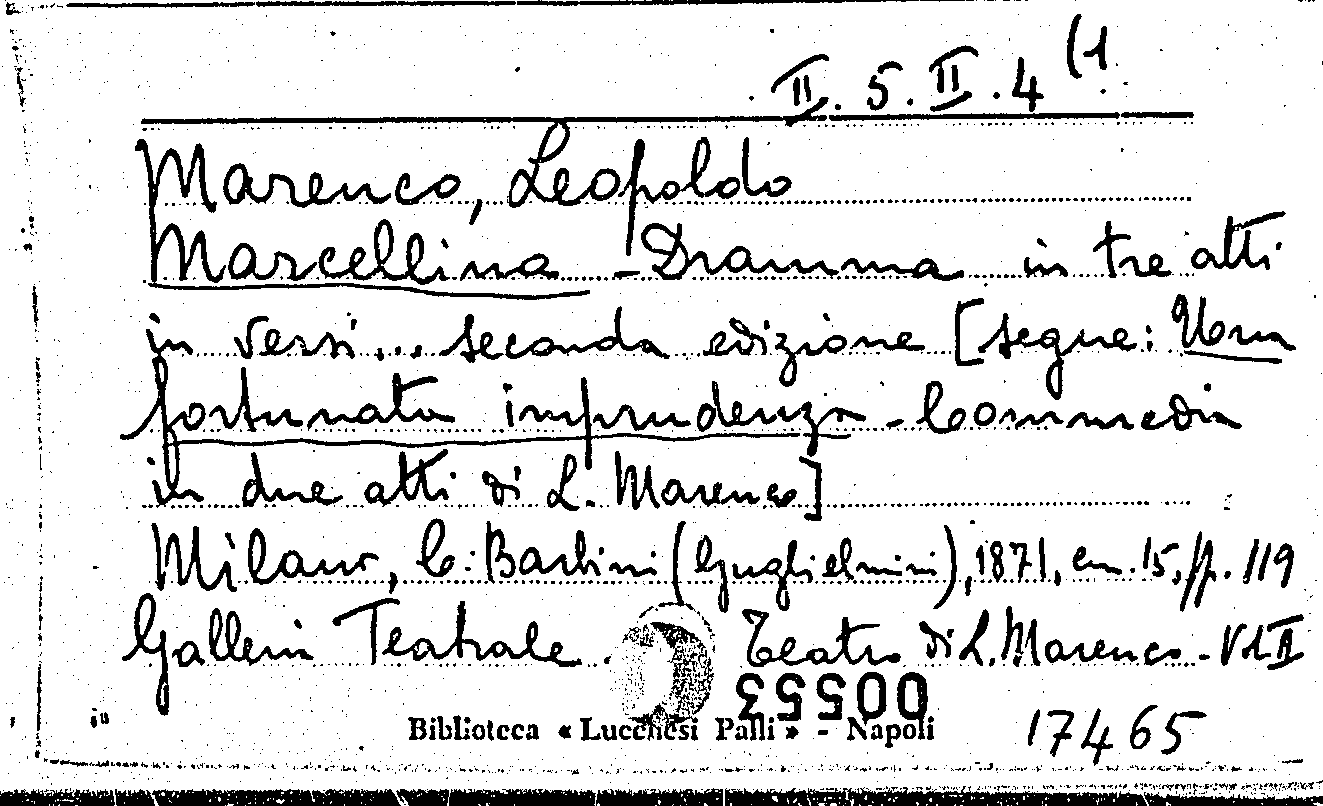 II. 5. II. 4 (1
Marenco, Leopoldo
Marcellina - Dramma in tre atti
in versi... seconda edizione [segue: Una
fortunata imprudenza - Commedia
in due atti di L. Marenco]
Milano, C. Barbini (Guglielmini), 1871, cm. 15, pp. 119
Galleria Teatrale. Teatro di L. Marenco - Vol II
00553
Biblioteca « Lucchesi Palli » - Napoli
17465